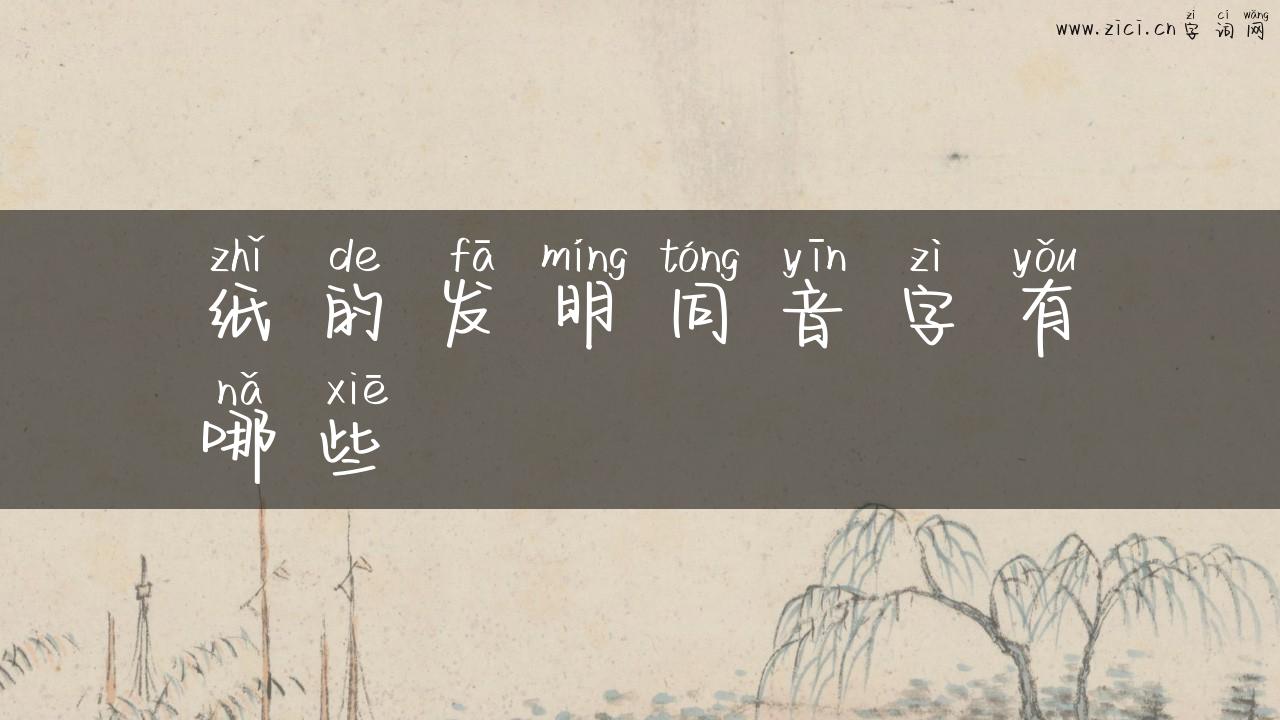 zì cí wǎng
www.zici.cn 字词网
zhǐ de fā míng tóng yīn zì yǒu
纸的发明同音字有
nǎ xiē
哪些